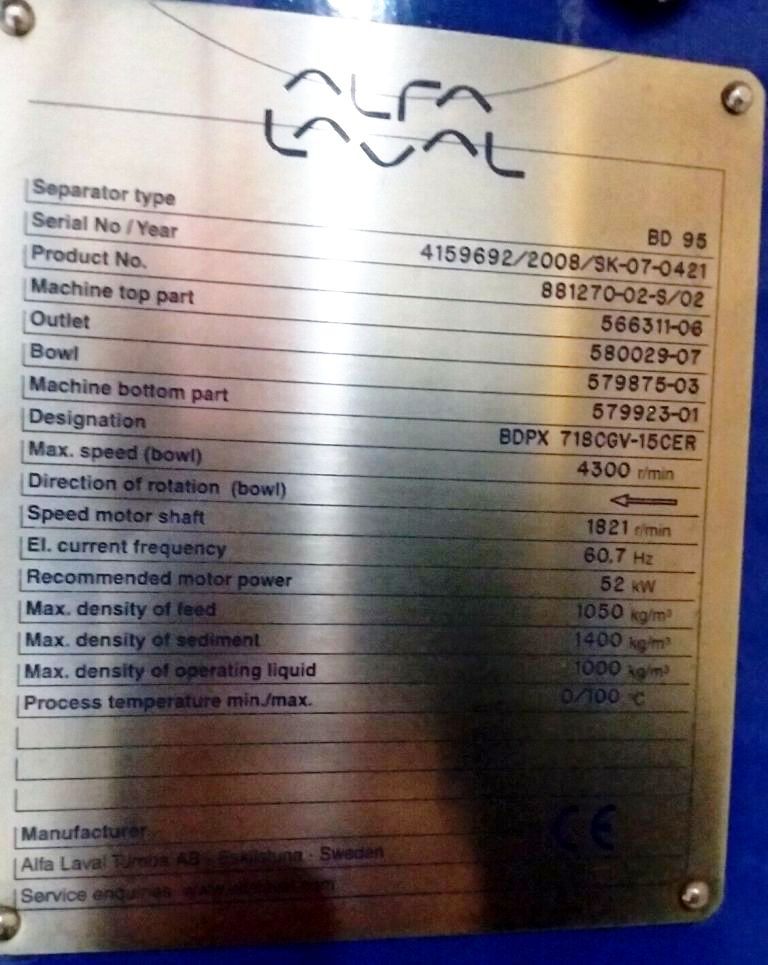 ALFA
LAVAL
Separator type BD 95
Serial No / Year 4159692/2008/SK-07-0421
Product No. 881270-02-S/02
Machine top part 566311-06
Outlet 580029-07
Bowl 579875-03
Machine bottom part 579923-01
Designation BDPX 718CGV-15CER
Max. speed (bowl) 4300 r/min
Direction of rotation (bowl)
Speed motor shaft 1821 r/min
El. current frequency 60.7 Hz
Recommended motor power 52 kW
Max. density of feed 1050 kg/m³
Max. density of sediment 1400 kg/m³
Max. density of operating liquid 1000 kg/m³
Process temperature min./max. 0/100 °C
CE
Manufacturer
Alfa Laval Tumba AB - Eskilstuna - Sweden
Service enquiries www.alfalaval.com